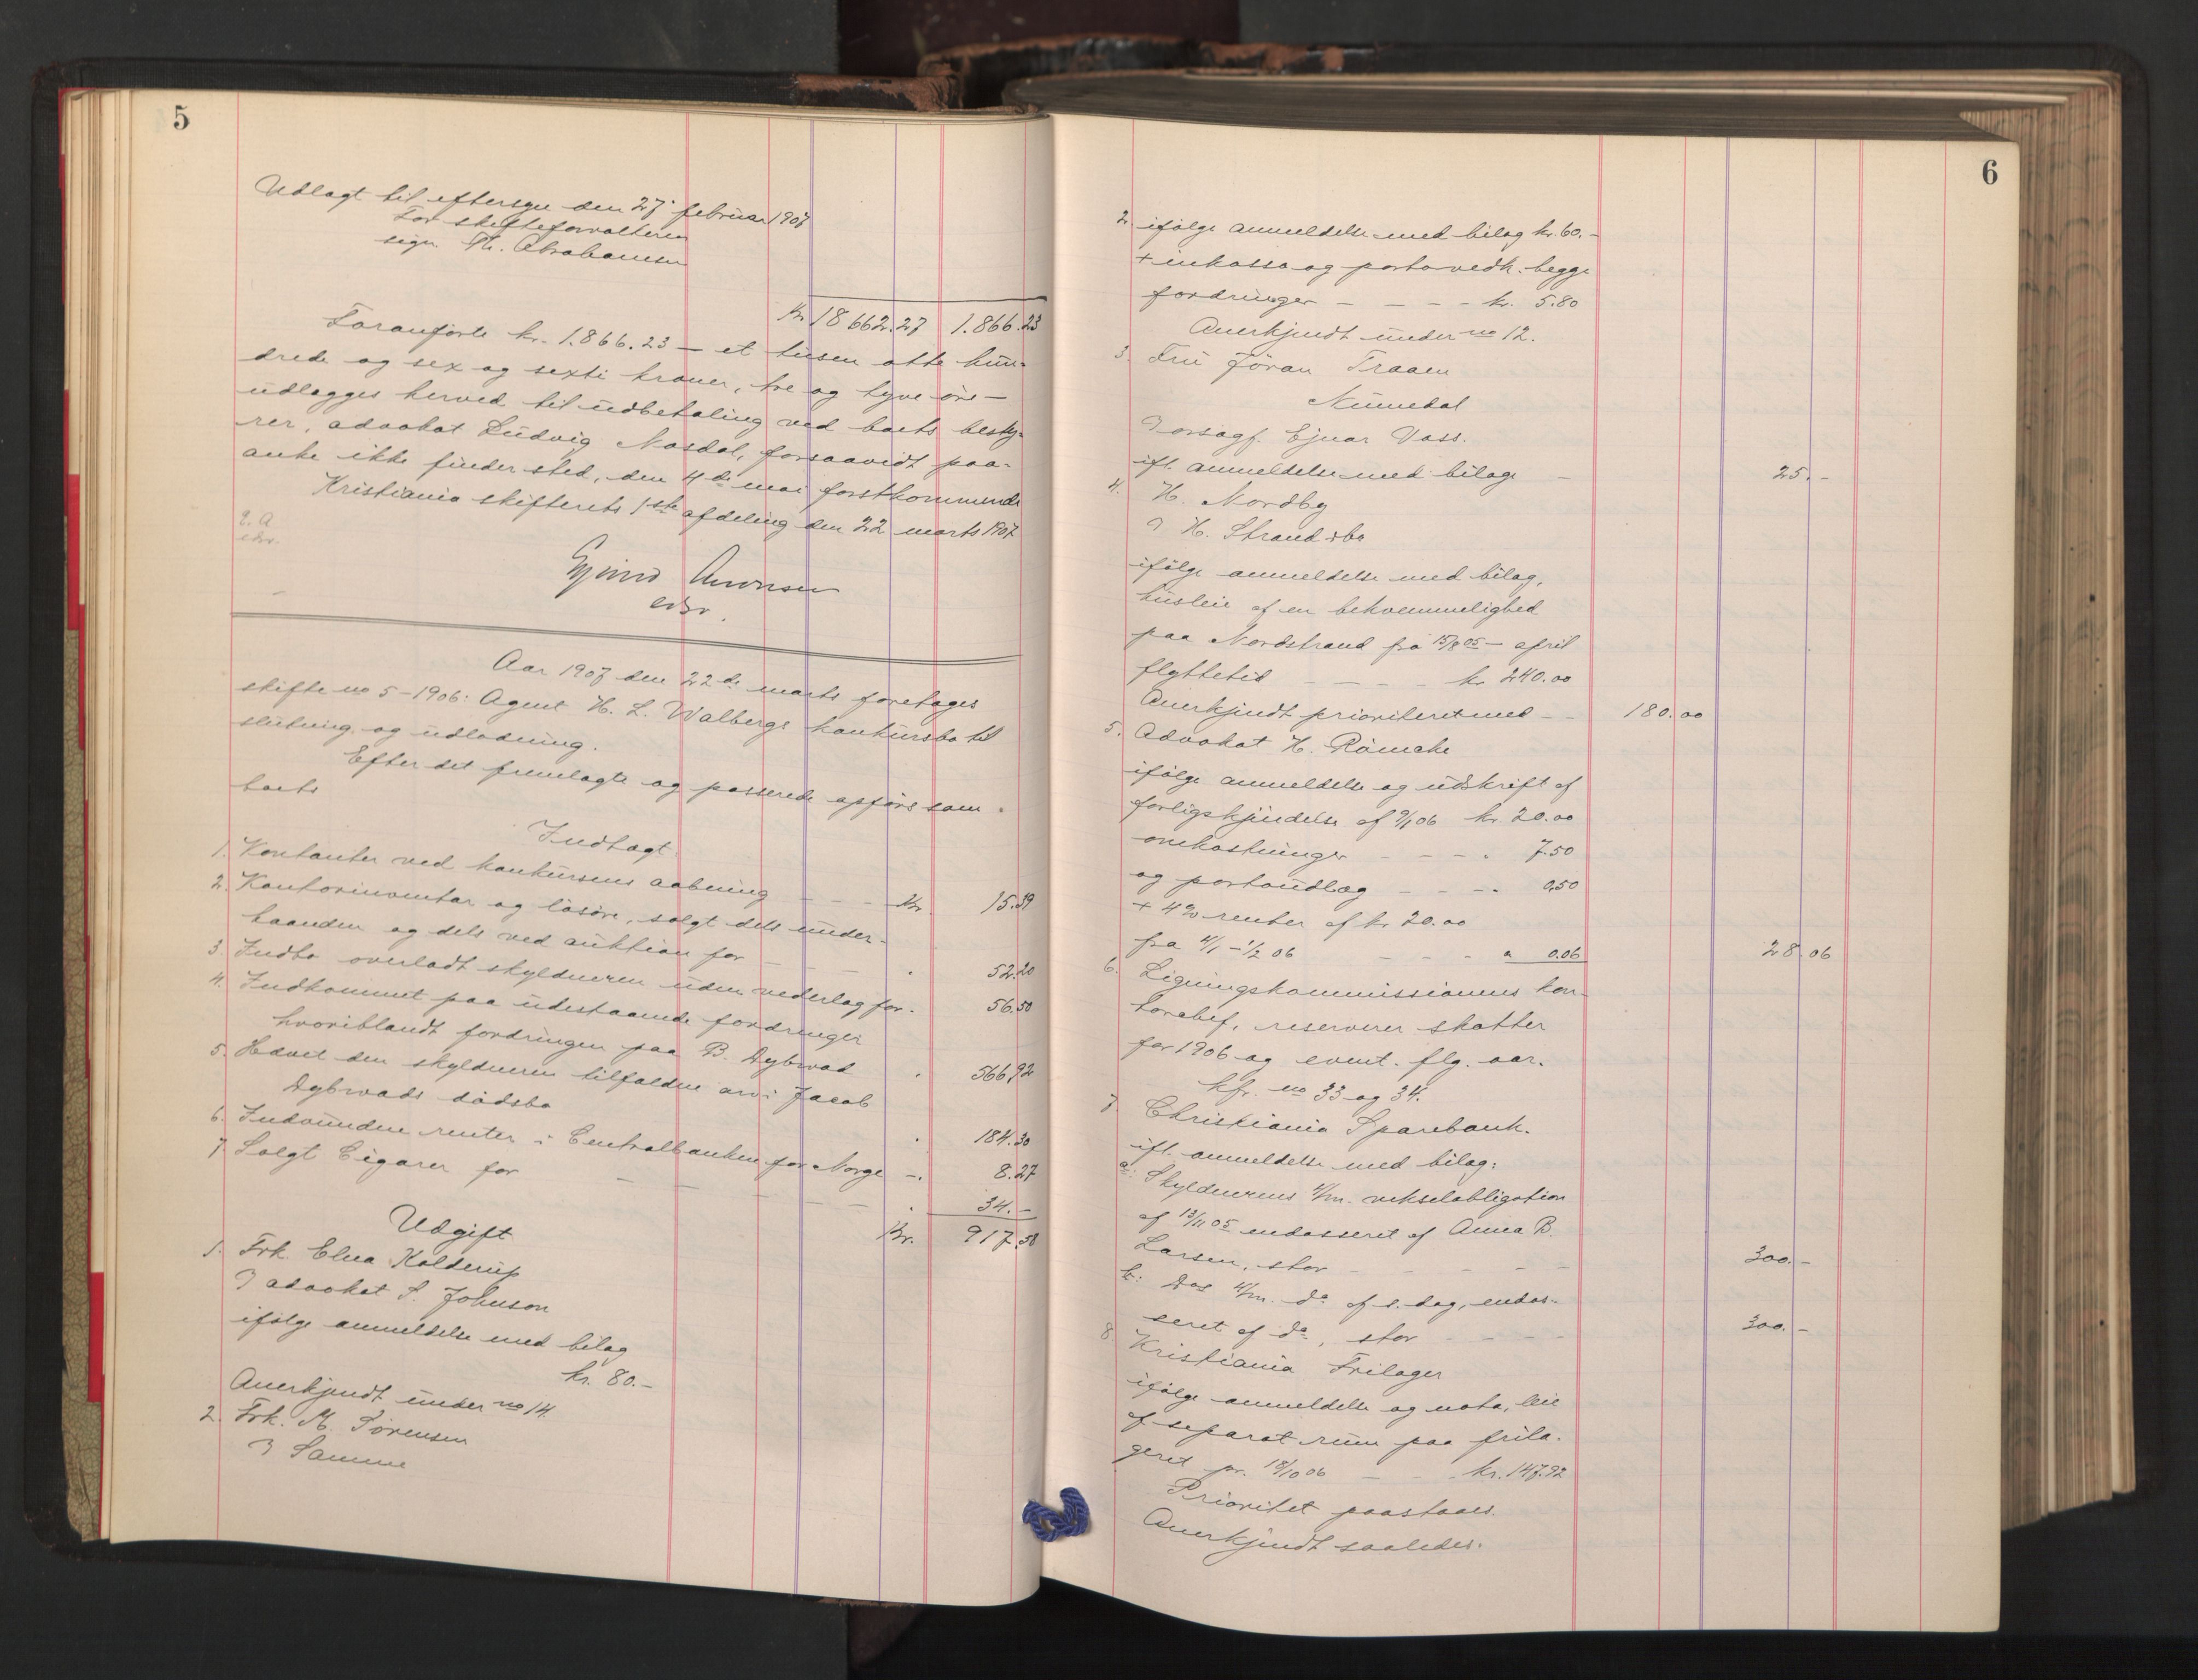 5
Udlagt til eftersyn den 27. februar 1907
For skifteforvalteren
sign Th. Abrahamsen
Kr 18 662.27 1.866.23
Foranførte kr. 1.866.23 — et tusen otte hun-
drede og sex og sexti kroner, tre og tyve øre —
udlægges herved til udbetaling ved boets besty-
rer, advokat Ludvig Mosdal, forsaavidt paa-
anke ikke finder sted, den 4de mai førstkommende
Kristiania skifterets 1ste afdeling den 22 marts 1907
edsv.
Aar 1907 den 22de marts foretages
skifte no 5-1906: Agent H. L. Walbergs konkursbo til
slutning og udlodning.
Efter det fremlagte og passerede opføres som
boets
Indtægt
1. Kontanter ved konkursens aabning — — — Kr. 15.39
2. Kontorinventar og løsøre, solgt dels under-
haanden og dels ved auktion for — — — 52.20
3. Indbo overladt skyldneren uden vederlag for 56.50
4. Indkommet paa udestaaende fordringer
hvoriblandt fordringen paa B. Dybwad 566.92
5. Hævet den skyldneren tilfaldne arv i Jacob
Dybwads dødsbo 184.30
6. Indvundne renter i Centralbanken for Norge — 8.27
7 Solgt Cigarer for — — — — 34.-
Kr. 917.58
Udgift
1. Frk. Elna Kolderup
advokat S. Johnson
ifølge anmeldelse med bilag
kr. 80.-
Anerkjendt under no 14.
2. Frk. M. Sørensen
Samme
6
2. ifølge anmeldelse med bilag kr. 60.-
+ inkasso og porto vedk. begge
fordringer — — — — kr. 5.80
Anerkjendt under no 12.
3. Fru Jöran Traaen
Numedal
Ejnar Voss.
ifl. anmeldelse med bilag — 25.-
4. H. Nordby
H. Strandsbo
ifølge anmeldelse med bilag,
husleie af en bekvemmelighed
paa Nordstrand fra 15/8 05 — april
flyttetid — — — — kr 240.00
Anerkjendt prioriteret med — — 180.00
5. Advokat H. Römcke
ifølge anmeldelse og udskrift af
forligskjendelse af 9/1 06 kr. 20.00
omkostninger — — — 7.50
og portoudlæg — — — 0.50
+ 4% renter af kr 20.00
fra 4/1 - 1/2 06 — — — 0.06 28.06
6. Ligningskommissionens kon-
torchef, reserverer skatter
for 1906 og event. flg. aar.
kfr. no 33 og 34.
7 Christiania Sparebank.
ifl. anmeldelse med bilag:
a: Skyldnerens 4/m. vekselobligation
af 13/11 05 endosseret af Anna B.
Larsen, stor — — — — 300.-
b: Dos 4/m. do af s. dag, endos-
seret af do, stor — — — — 300.-
8. Kristiania Frilager
ifølge anmeldelse og nota, leie
af separat rum paa frila-
geret pr. 18/10 06 — — kr. 147.92
Prioritet paastaaes.
Anerkjendt saaledes.